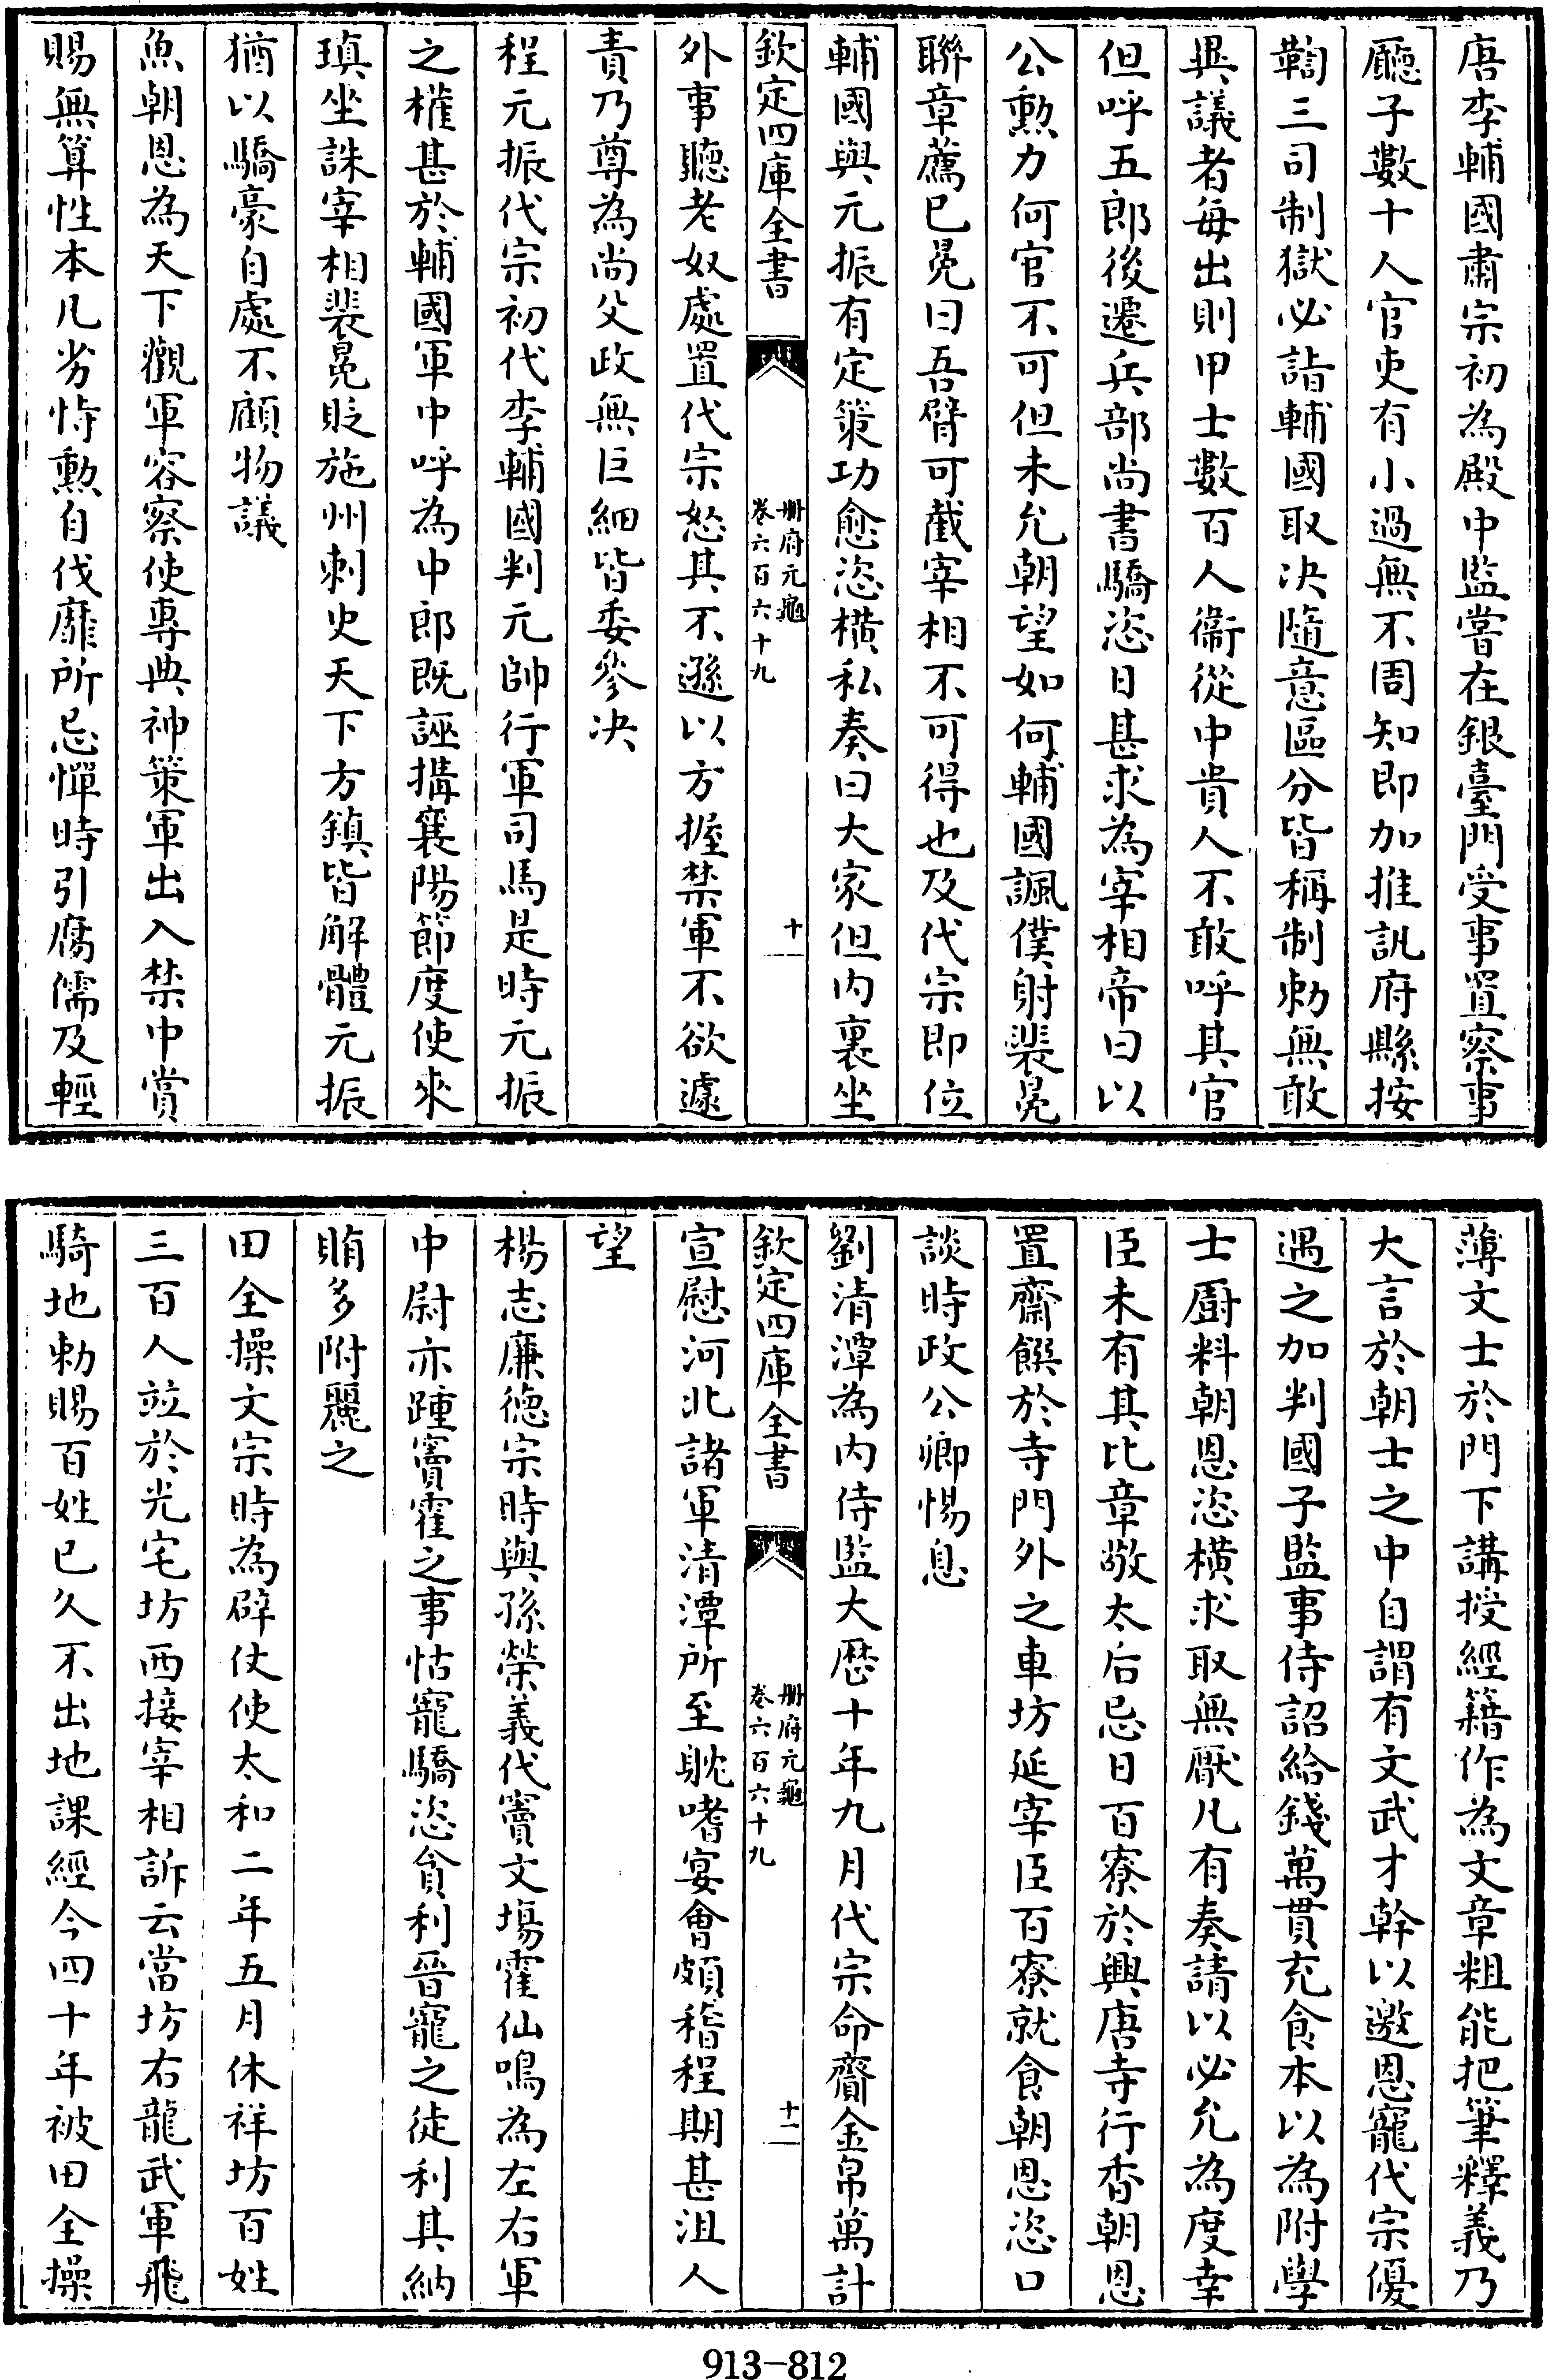 唐李輔國肅宗初為殿中監嘗在銀臺門受事置察事
廳子數十人官吏有小過無不周知即加推訊府縣按
鞫三司制獄必詣輔國取決隨意區分皆稱制勅無敢
異議者每出則甲士數百人衞從中貴人不敢呼其官
但呼五郎後遷兵部尚書驕恣日甚求為宰相帝曰以
公勲力何官不可但未允朝望如何輔國諷僕射裴冕
聯章薦已冕曰吾臂可截宰相不可得也及代宗即位
輔國與元振有定策功愈恣橫私奏曰大家但内裏坐
欽定四庫全書
册府元龜
卷六百六十九
十
外事聽老奴處置代宗怒其不遜以方握禁軍不欲遽
責乃尊為尚父政無巨細皆委參決
程元振代宗初代李輔國判元帥行軍司馬是時元振
之權甚於輔國軍中呼為中郎既誣搆襄陽節度使來
瑱坐誅宰相裴冕貶施州刺史天下方鎮皆解體元振
猶以驕豪自處不顧物議
魚朝恩為天下觀軍容察使專典神策軍出入禁中賞
賜無算性本凡劣恃勲自伐靡所忌憚時引腐儒及輕
薄文士於門下講授經籍作為文章粗能把筆釋義乃
大言於朝士之中自謂有文武才幹以邀恩寵代宗優
遇之加判國子監事侍詔給錢萬貫充食本以為附學
士厨料朝恩恣橫求取無厭凡有奏請以必允為度幸
臣未有其比章敬太后忌日百寮於興唐寺行香朝恩
置齋饌於寺門外之車坊延宰臣百寮就食朝恩恣口
談時政公卿惕息
劉清潭為内侍監大厯十年九月代宗命齎金帛萬計
欽定四庫全書
册府元龜
卷六百六十九
十一
宣慰河北諸軍清潭所至躭嗜宴會頗稽程期甚沮人
望
楊志廉德宗時與孫榮義代竇文場霍仙鳴為左右軍
中尉亦踵竇霍之事怙寵驕恣貪利晉寵之徒利其納
賄多附麗之
田全操文宗時為辟仗使太和二年五月休祥坊百姓
三百人竝於光宅坊西接宰相訴云當坊右龍武軍飛
騎地勅賜百姓已久不出地課經今四十年被田全操
913-812